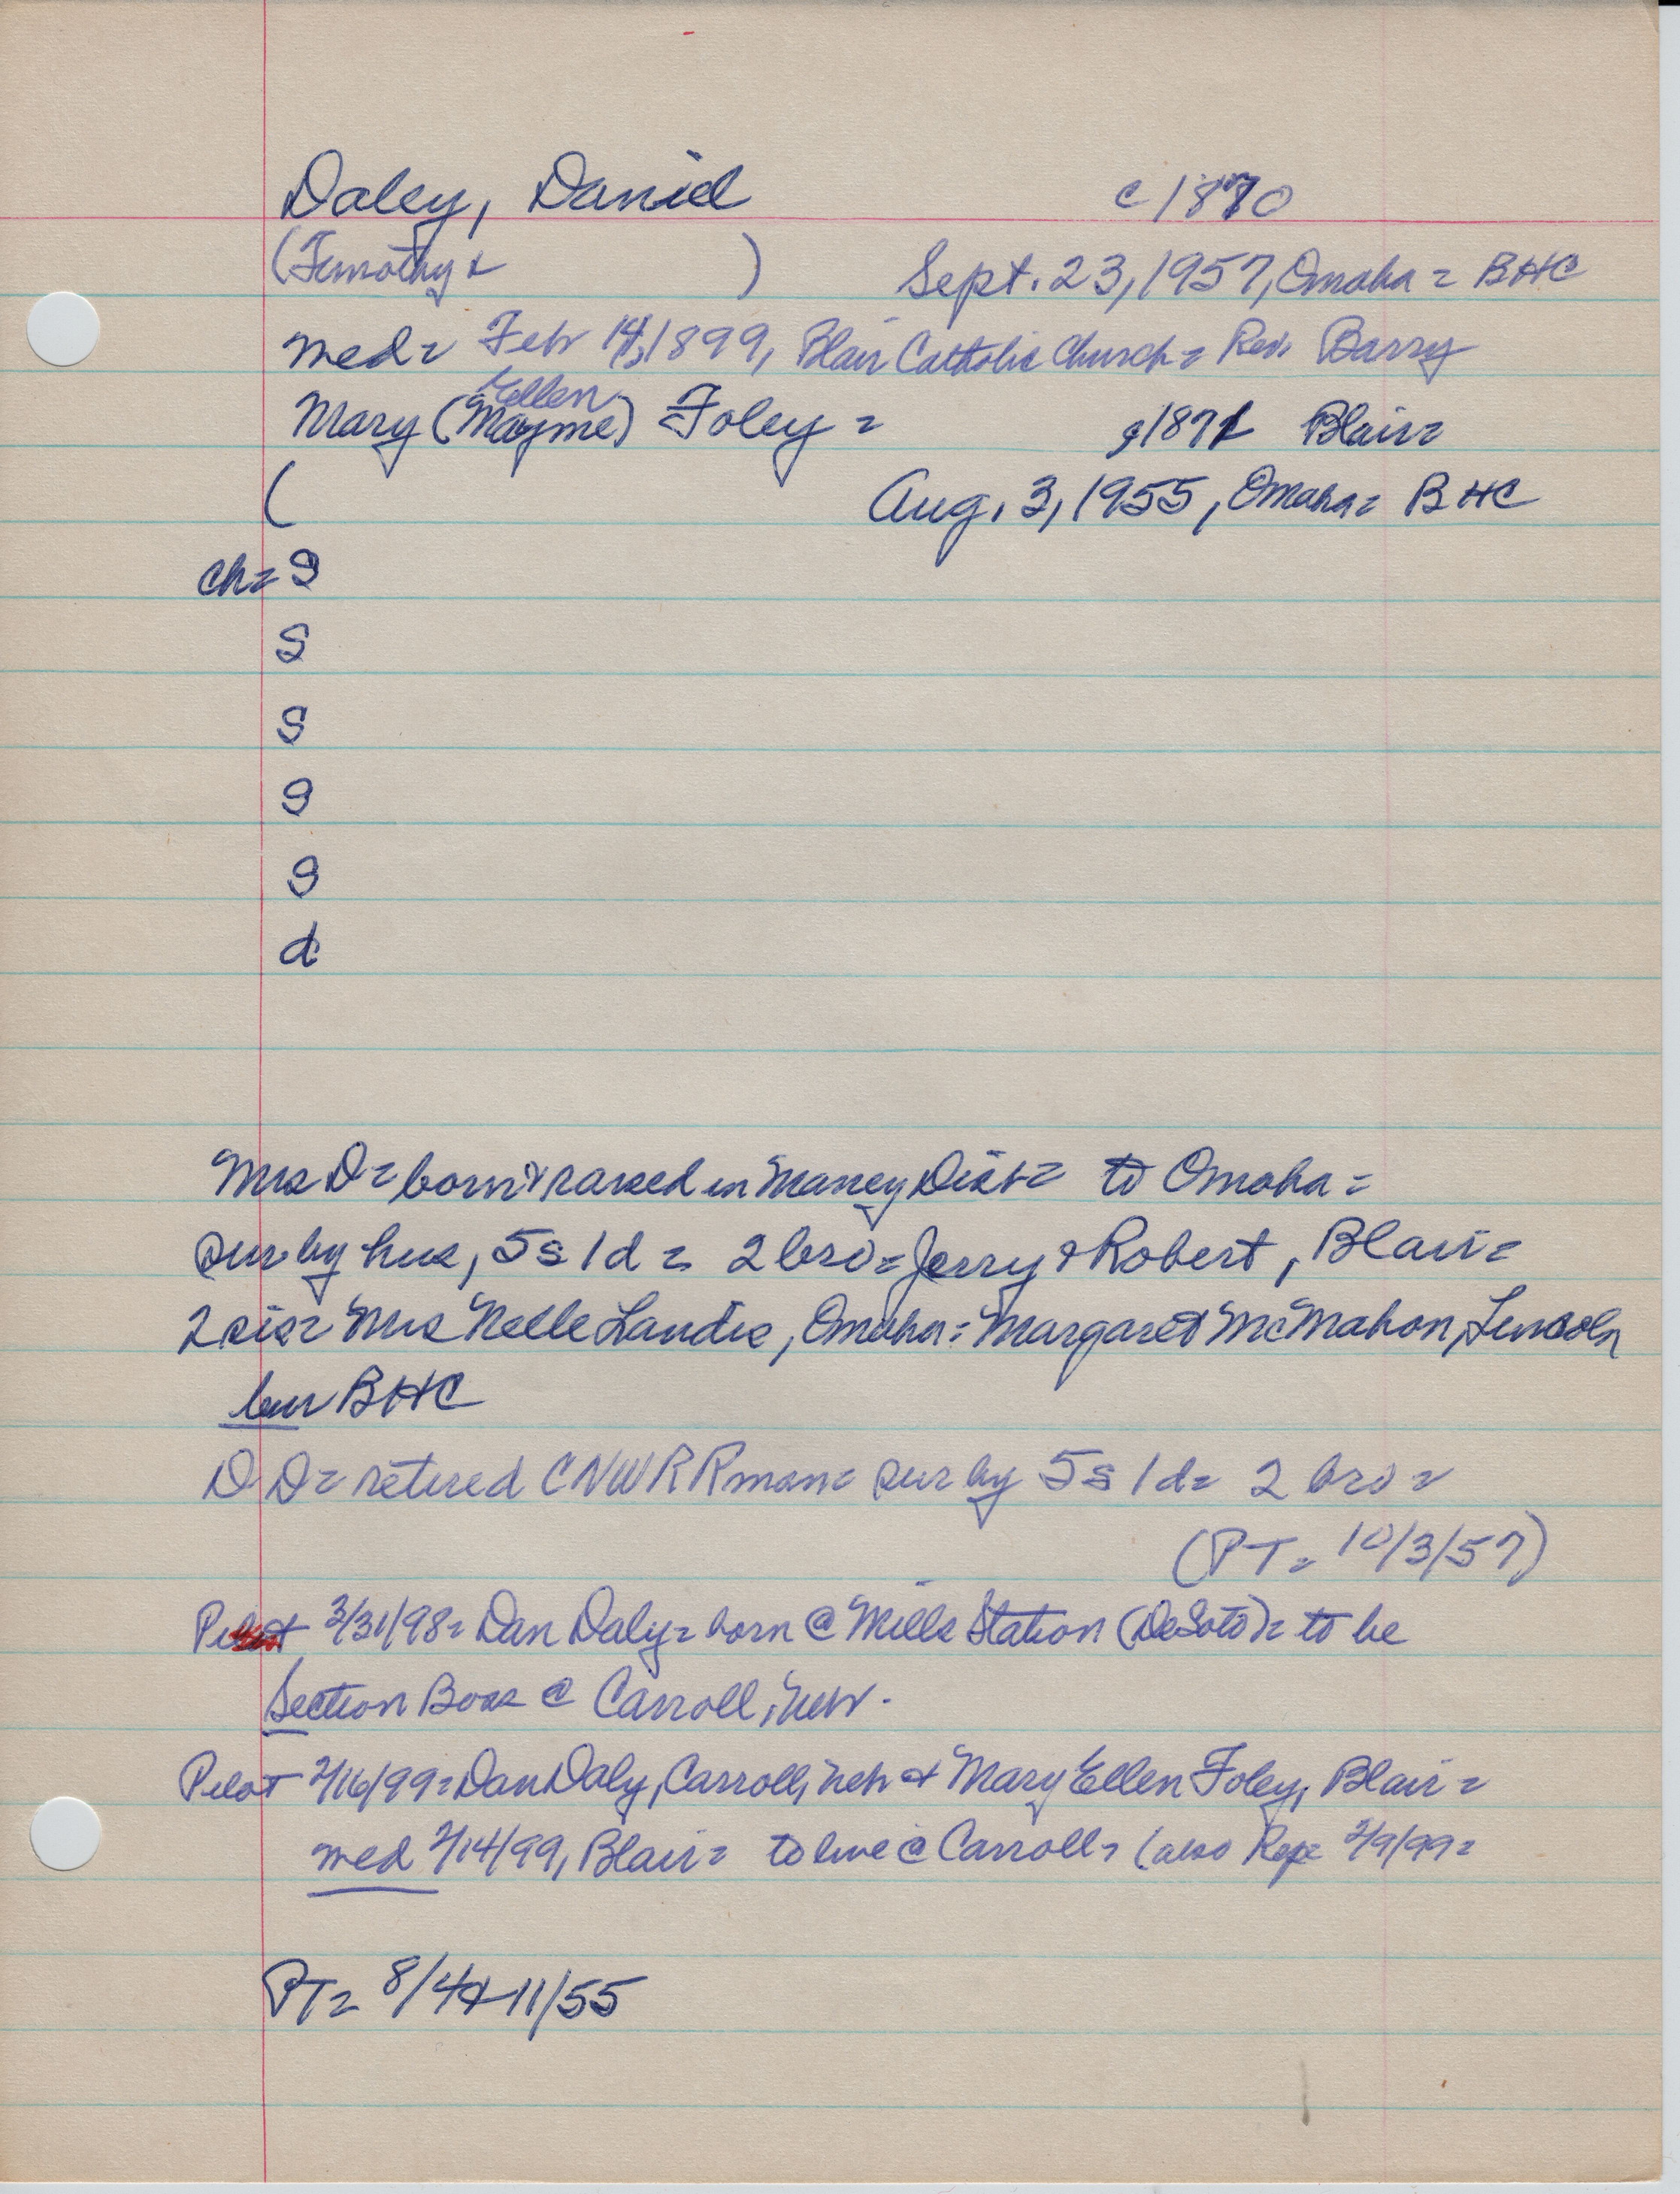 Daley, Daniel c 1870
(Timothy & ) Sept. 23, 1957, Omaha = BHC
med = Feb 14, 1899, Blair Catholic Church = Rev. Barry
Ellen
Mary (Mayme) Foley = 1871 Blair =
( Aug. 3, 1955, Omaha = BHC
ch = s
s
s
s
s
d
Mrs D = born & raised in Maney Dist = to Omaha =
sur by hus, 5s 1d = 2 bro = Jerry & Robert, Blair =
2 sis = Mrs Nelle Landis, Omaha = Margaret McMahon, Lincoln
bur BHC
D. D = retired CNWRRman = sur by 5s 1d = 2 bro =
(PT = 10/3/57)
Pilot 3/31/98 = Dan Daly = born @ Mills Station (DeSoto) = to be
Section Boss @ Carroll, Neb.
Pilot 2/16/99 = Dan Daly, Carroll, Neb & Mary Ellen Foley, Blair =
med 2/14/99, Blair = to live @ Carroll = (also Rep = 2/9/99 =
PT = 8/4 & 11/55